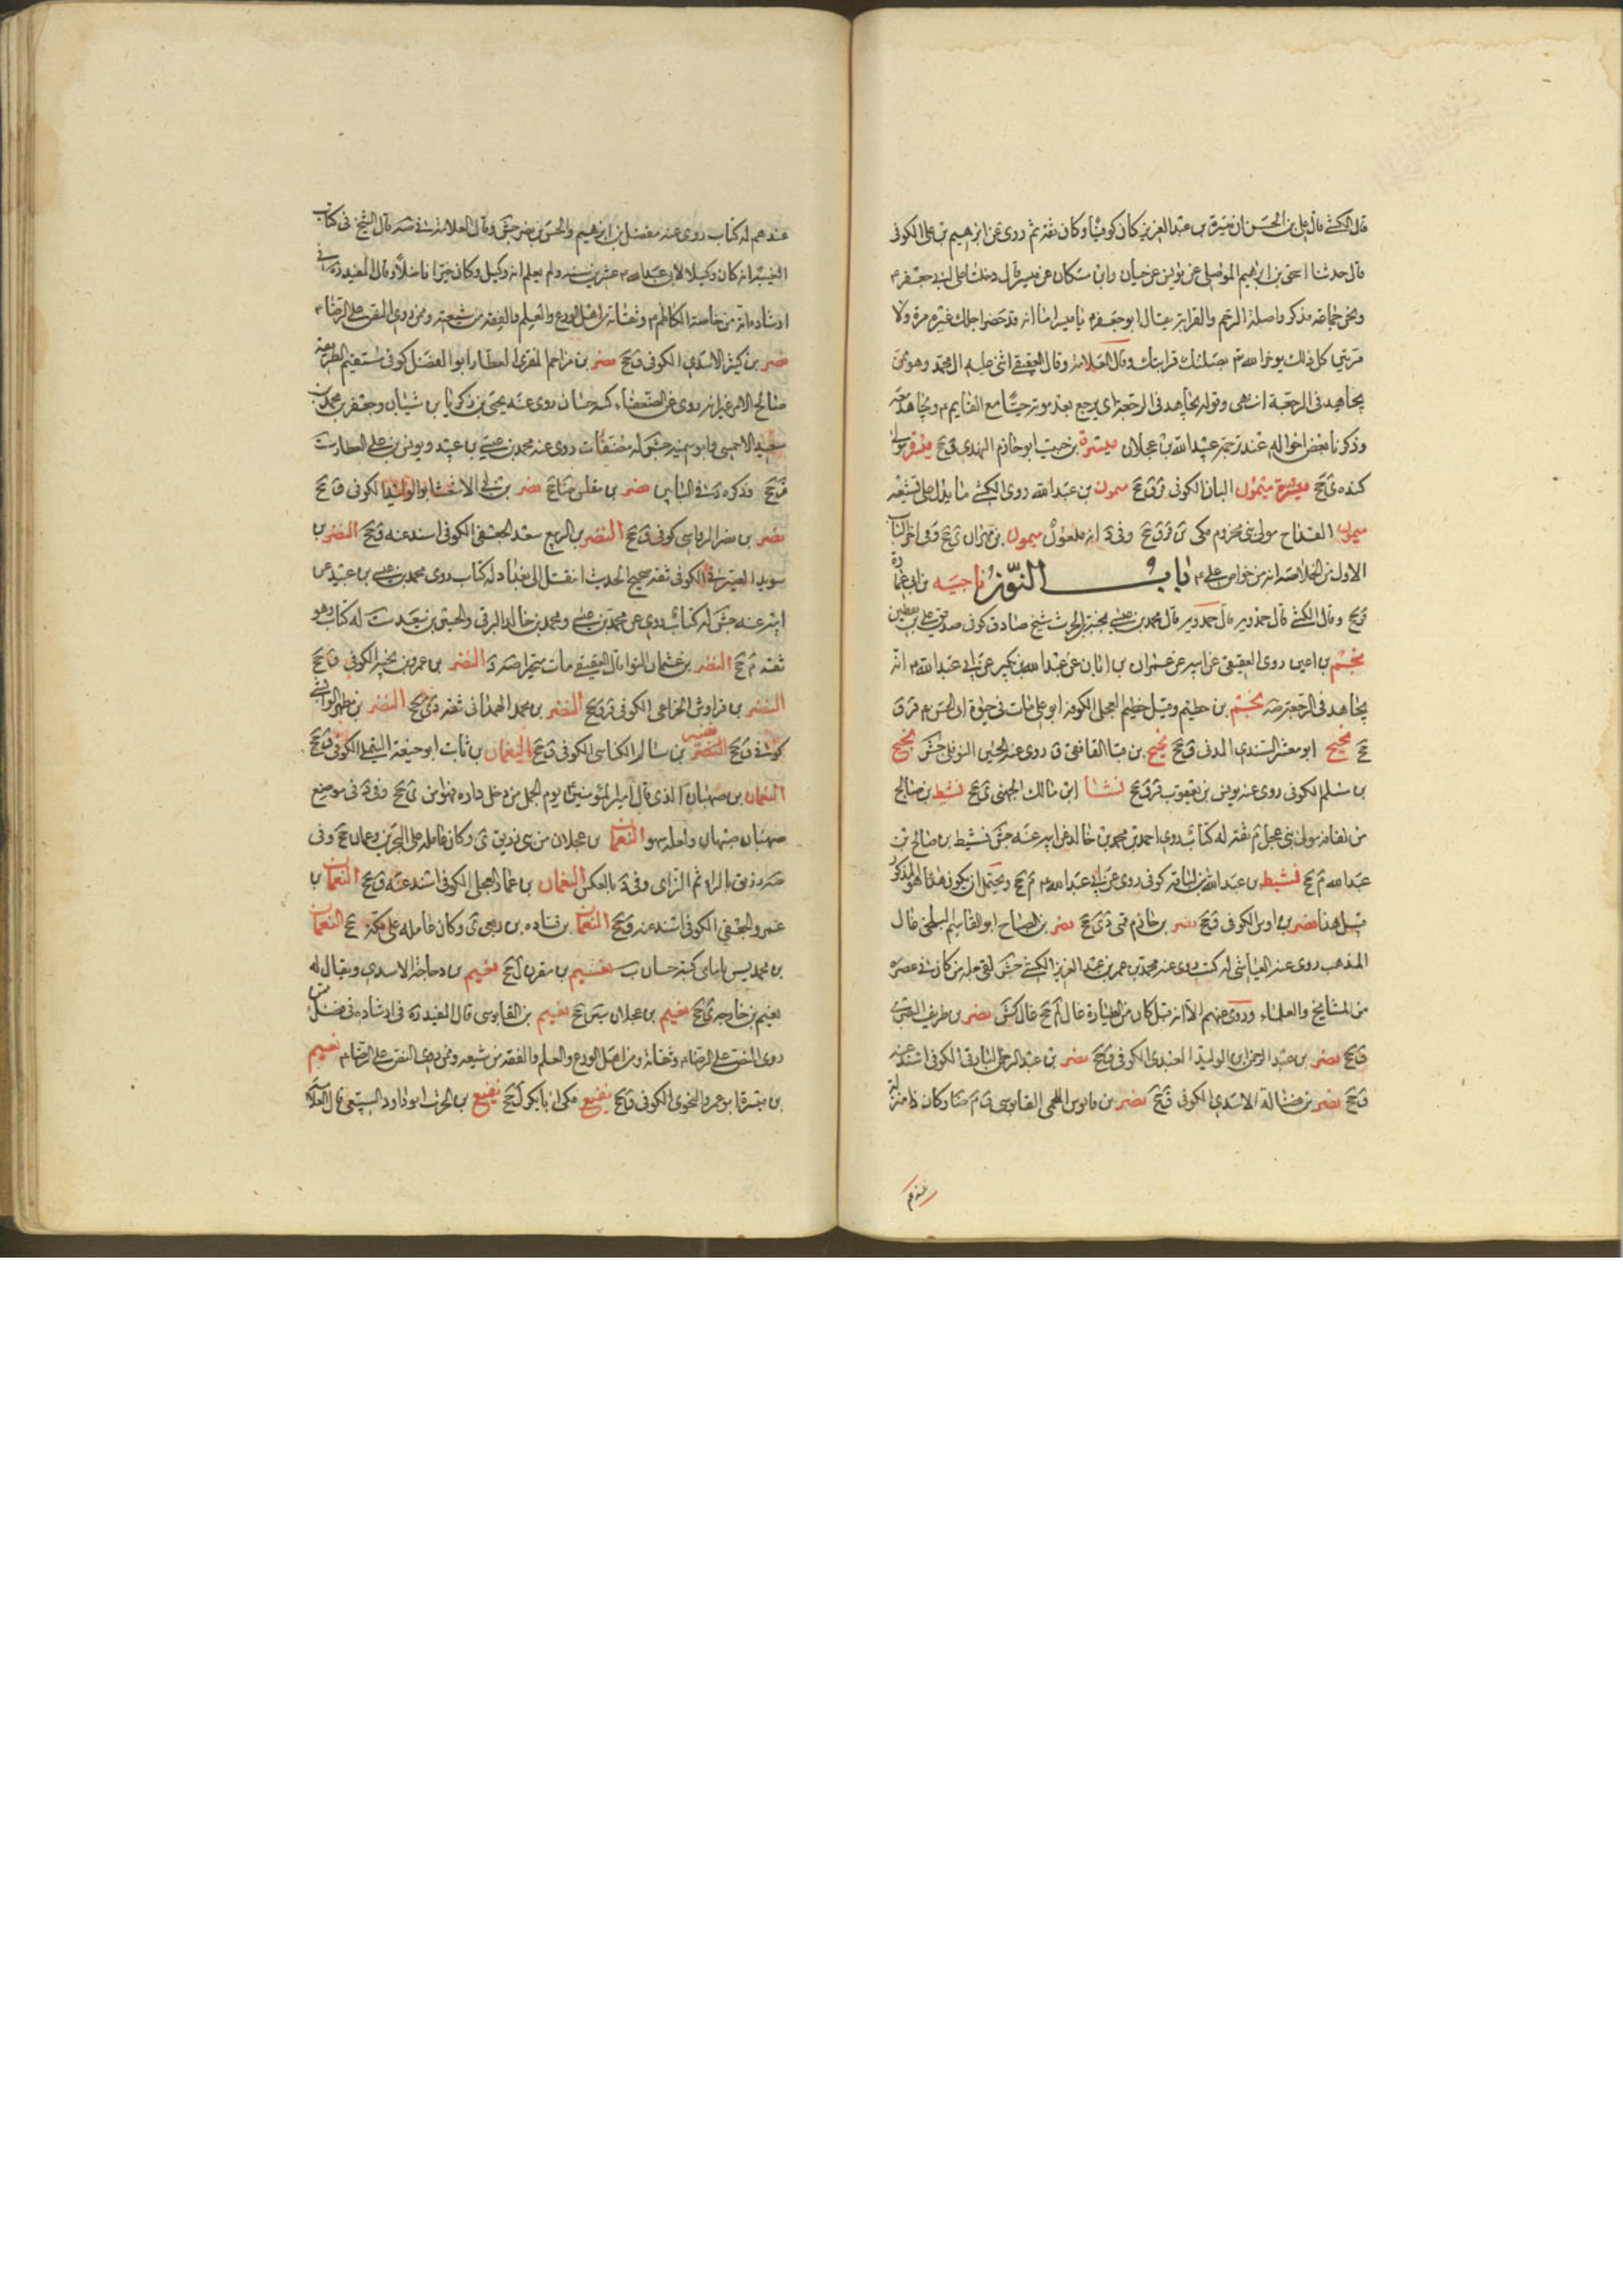 قال الكشي قال علي بن الحسن ان ميسرة بن عبد العزيز كان كوفيا وكان ثقة ثم روى عن ابرهيم بن علي الكوفي
قال حدثنا اسحق بن ابرهيم الموصلي عن يونس عن حنان وابن مسكان عن ميسر قال دخلنا على ابي جعفر ع
ونحن جماعة فذكروا صلة الرحم والقرابة فقال ابو جعفر ع يا ميسر اما انه قد حضر اجلك غير مرة ولا
مرتين كل ذلك يؤخر الله بصلتك قرابتك وقال العلامة وقال العقيقي اثنى عليه ال محمد وهو ممن
يجاهد في الرجعة انتهى وقوله يجاهد في الرجعة اي يرجع بعد موته حيا مع القايم ع ويجاهد معه
وذكرنا بعض احواله عند ترجمة عبد الله بن عجلان ميسرة بن حبيب ابو حازم النهدي ق جخ ميسرة مولى
كنده ى جخ ميسرة ميمون البان الكوفي قر ق جخ ميمون بن عبد الله روى الكشي ما يدل على
ميمون القداح مولى بني مخزوم مكي ين قر ق جخ وفي د انه ملعون ميمون بن مهران ى جخ وفي اخر الباب
الاول من الخلاصة انه من خواص علي ع باب النون ناجيه بن ابي عمارة
قر جخ وقال الكشي قال حمدويه قال محمد بن عيسى نجية بن الحرث شيخ صادق كوفي صديق علي بن يقطين
نجم بن اعين روى العقيقي عن ابيه عن عمران بن ابان عن عبد الله بن بكير عن ابي عبد الله ع انه
يجاهد في الرجعة صه نجم بن حطيم وقيل خطيم العجلي الكوفي ابو علي مات في حيوة ابي الحسن ع قر ق
جخ نجيح ابو معشر السندي المدني ق جخ نجيح بن قبا الغافقي ق روى عنه الحسين النوفلي جش نجيح
بن مسلم الكوفي روى عنه يونس بن يعقوب قر ق جخ نشا ابن مالك الجهني ى جخ نشيط بن صالح
بن لفافه مولى بني عجل م ثقة له كتاب روى احمد بن محمد بن خالد عن ابيه عنه جش نشيط بن صالح بن
عبد الله م جخ نشيط بن عبد الله كوفي روى عن ابي عبد الله ع م جخ ويحتمل ان يكون هذا هو المذكور
قبل هذا نصر بن اوس الكوفي ق جخ نصر بن حازم قمي دى جخ نصر بن الصباح ابو القاسم البلخي غال
المذهب روى عنه العياشي له كتب روى عنه محمد بن عمر بن عبد العزيز الكشي جش لقي جلة من كان في عصره
من المشايخ والعلماء وروى عنهم الا انه قيل كان من الطيارة غال لم جخ غال كش نصر بن طريف
ق جخ نصر بن عبد الرحمن ابن الوليد العبدي الكوفي ق جخ نصر بن عبد الرحمن البارقي الكوفي اسند عنه
ق جخ نصر بن فضالة الاسدي الكوفي ق جخ نصر بن قابوس اللخمي القابوسي ق م ضا وكان ذا منزلة
عندهم
عندهم له كتاب روى عنه مفضل بن ابرهيم والحسن بن نصر جش وقال العلامة في صه قال الشيخ في كتاب
الغيبة انه كان وكيلا لابي عبد الله ع عشرين سنة ولم يعلم انه وكيل وكان خيرا فاضلا وقال المفيد ره في
ارشاده انه من خاصة الكاظم ع وثقاته من اهل الورع والعلم والفقه من شيعته وممن روى النص على الرضا ع
نصر بن كثير الاسدي الكوفي ق جخ نصر بن مزاحم المنقري العطار ابو الفضل كوفي مستقيم الطريقة
صالح الامر غير انه روى عن الضعفاء كتبه حسان روى عنه يحيى بن زكريا بن شيبان وجعفر بن محمد بن
سعيد الاحمسي وابو سمينه جش له مصنفات روى عنه محمد بن عيسى بن عبيد ويونس بن علي العطار ست
قر جخ وذكره د في البابين نصر بن مغلس ضا جخ نصر بن الاشعث ابو الوليد الكوفي ق جخ
نصر بن نصر الرفاسي كوفي ق جخ النضر بن الربيع سعد الجعفي الكوفي اسند عنه ق جخ النضر بن
سويد الصيرفي الكوفي ثقة صحيح الحديث انتقل الى بغداد له كتاب روى محمد بن عيسى بن عبيد عن
ابيه عنه جش له كتاب روى عن محمد بن عيسى ومحمد بن خالد البرقي والحسين بن سعيد ست له كتاب وهو
ثقة م جخ النضر بن عثمان النوا قال العقيقي مات متحيرا صه د النضر بن عمرو بن الكوفي ق جخ
النضر بن قرواش الخزاعي الكوفي قر ق جخ النضر بن محمد الهمداني ثقة دى جخ النضر بن مطهر الوابشي
كوفي ق جخ النضر بن سالم الكناسي الكوفي ق جخ النعمان بن ثابت ابو حنيفة التيملي الكوفي ق جخ
النعمان بن صهبان الذي قال امير المؤمنين ع يوم الجمل من دخل داره فهو امن ى جخ وفي د في موضع
صهبان صبهان ولعله سهو النعمان بن عجلان من بني زريق ى وكان عامله على البحرين وعمان جخ وفي
صه رزيق بالراء ثم الزاى وفي د بالعكس النعمان بن عمار العجلي الكوفي اسند عنه ق جخ النعمان بن
عمرو الجعفي الكوفي اسند عنه ق جخ النعمان بن قتاده بن ربعي ى وكان عامله على مكة جخ النعمان
بن محمد ليس بامامي كتبه حسان ب نعيم بن مقرن ل جخ نعيم بن دجاجة الاسدي ويقال له
نعيم بن خارجه ى جخ نعيم بن عجلان سين جخ نعيم بن القابوسي قال المفيد ره في ارشاده في فصل من
روى النص على الرضا ع وثقاته ومن اهل الورع والعلم والفقه من شيعته وممن روى النص على الرضا ع نعيم
بن ميسرة ابو عمرو النحوي الكوفي ق جخ نفيع مكى ابا بكر ل جخ نفيع بن الحرث ابو داود السبيعي قال العلامة